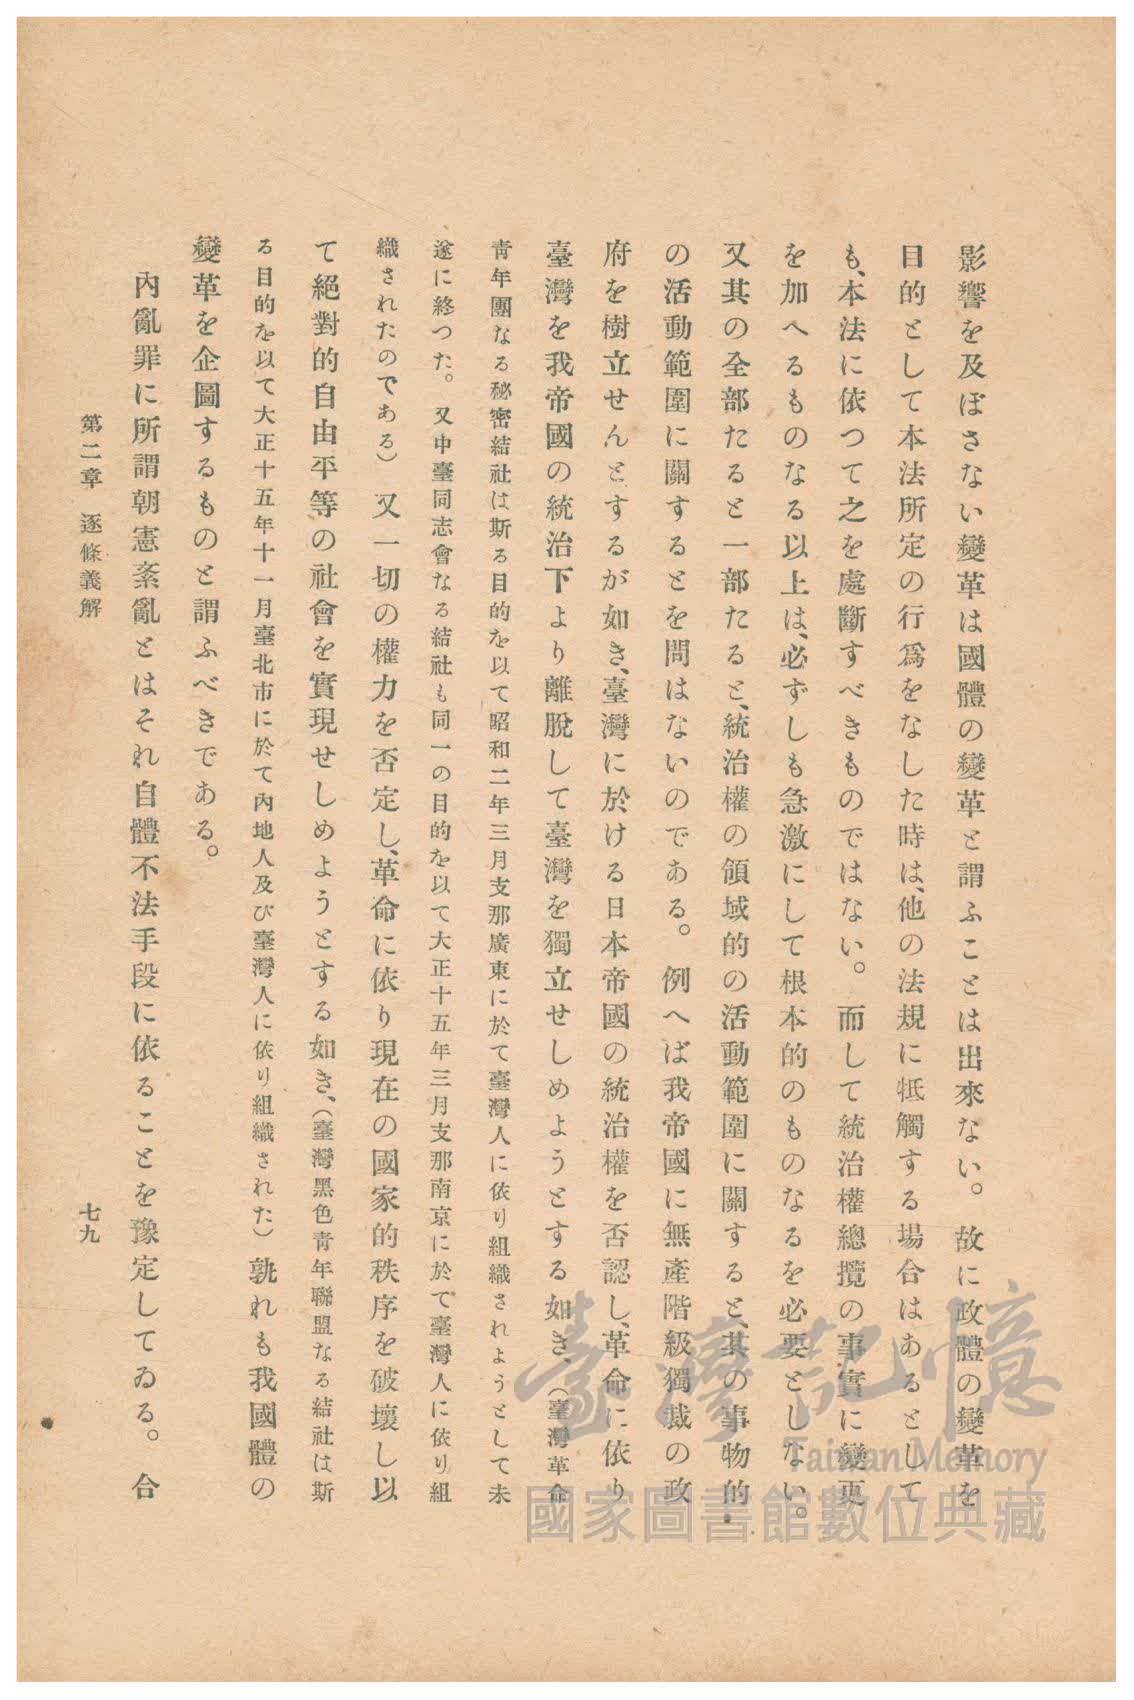 影響を及ぼさない變革は國體の變革と謂ふことは出來ない。故に政體の變革を
目的として本法所定の行爲をなした時は、他の法規に牴觸する場合はあるとして
も、本法に依つて之を處斷すべきものではない。而して統治權總攬の事實に變更
を加へるものなる以上は、必ずしも急激にして根本的のものなるを必要としない。
又其の全部たると一部たると、統治權の領域的の活動範圍に關すると、其の事物的
の活動範圍に關するとを問はないのである。例へば我帝國に無產階級獨裁の政
府を樹立せんとするが如き、臺灣に於ける日本帝國の統治權を否認し、革命に依り
臺灣を我帝國の統治下より離脫して臺灣を獨立せしめようとする如き、（臺灣革命
靑年團なる秘密結社は斯る目的を以て昭和二年三月支那廣東に於て臺灣人に依り組織されようとして未
遂に終つた。又中臺同志會なる結社も同一の目的を以て大正十五年三月支那南京に於て臺灣人に依り組
織されたのである）又一切の權力を否定し、革命に依り現在の國家的秩序を破壞し以
て絕對的自由平等の社會を實現せしめようとする如き、（臺灣黑色靑年聯盟なる結社は斯
る目的を以て大正十五年十一月臺北市に於て內地人及び臺灣人に依り組織された）孰れも我國體の
變革を企圖するものと謂ふべきである。
內亂罪に所謂朝憲紊亂とはそれ自體不法手段に依ることを豫定してゐる。合
第二章 逐條義解 七九
臺灣記憶
Taiwan Memory
國家圖書館數位典藏